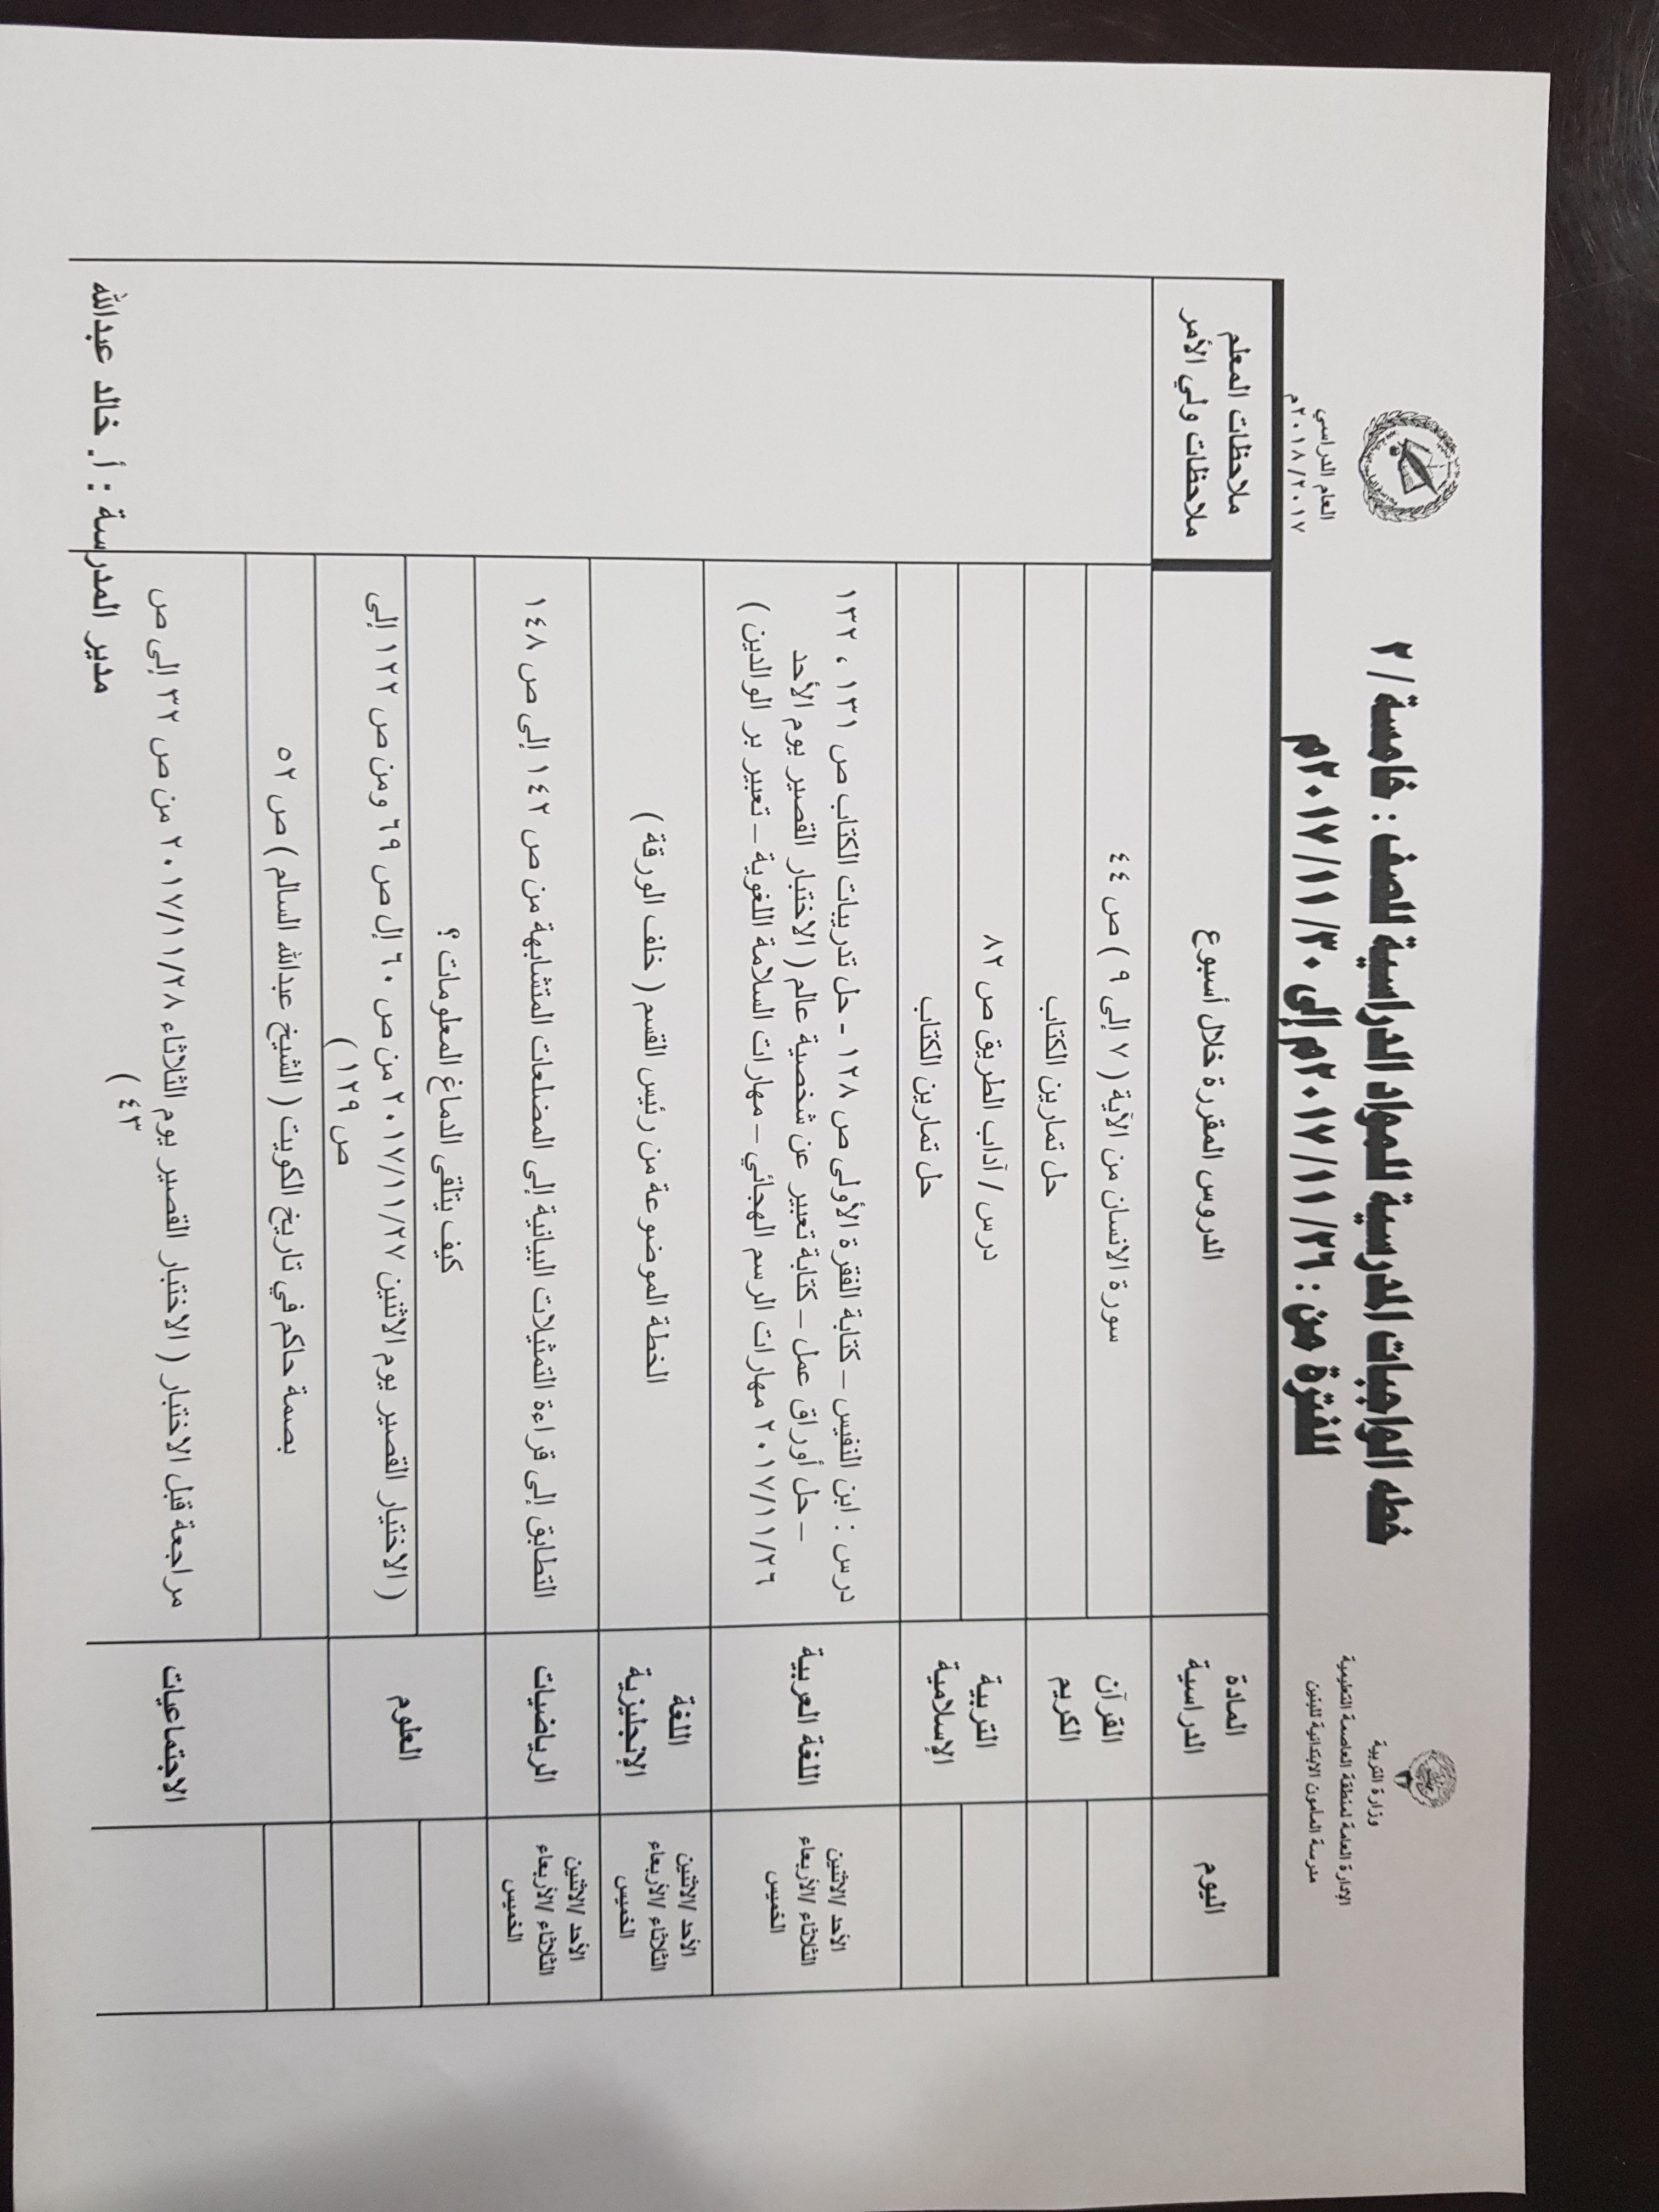 وزارة التربية
الإدارة العامة لمنطقة العاصمة التعليمية
مدرسة المأمون الابتدائية للبنين
خطه الواجبات المدرسية للمواد الدراسية للصف : خامسة / ٢
للفترة من : ٢٦ / ١١ / ٢٠١٧م إلى ٣٠ / ١١ / ٢٠١٧م
العام الدراسي
٢٠١٨/٢٠١٧م
اليوم
المادة
الدراسية
الدروس المقررة خلال أسبوع
ملاحظات المعلم
ملاحظات ولي الأمر
القرآن
الكريم
سورة الانسان من الآية ( ٧ إلى ٩ ) ص ٤٤
حل تمارين الكتاب
التربية
الإسلامية
درس / آداب الطريق ص ٨٢
حل تمارين الكتاب
الأحد /الاثنين
الثلاثاء /الأربعاء
الخميس
اللغة العربية
درس : ابن النفيس – كتابة الفقرة الأولى ص ١٢٨ - حل تدريبات الكتاب ص ١٣١ ، ١٣٢
– حل أوراق عمل – كتابة تعبير عن شخصية عالم ( الاختبار القصير يوم الأحد
٢٠١٧/١١/٢٦ مهارات الرسم الهجائي – مهارات السلامة اللغوية – تعبير بر الوالدين )
الأحد /الاثنين
الثلاثاء /الأربعاء
الخميس
اللغة
الإنجليزية
الخطة الموضوعة من رئيس القسم ( خلف الورقة )
الأحد /الاثنين
الثلاثاء /الأربعاء
الخميس
الرياضيات
التطابق إلى قراءة التمثيلات البيانية إلى المضلعات المتشابهة من ص ١٤٢ إلى ص ١٤٨
العلوم
كيف يتلقى الدماغ المعلومات ؟
( الاختبار القصير يوم الاثنين ٢٠١٧/١١/٢٧ من ص ٦٠ إل ص ٦٩ ومن ص ١٢٢ إلى
ص ١٢٩ )
الاجتماعيات
بصمة حاكم في تاريخ الكويت ( الشيخ عبدالله السالم ) ص ٥٢
مراجعة قبل الاختبار ( الاختبار القصير يوم الثلاثاء ٢٠١٧/١١/٢٨ من ص ٣٢ إلى ص
٤٣ )
مدير المدرسة : أ. خالد عبدالله